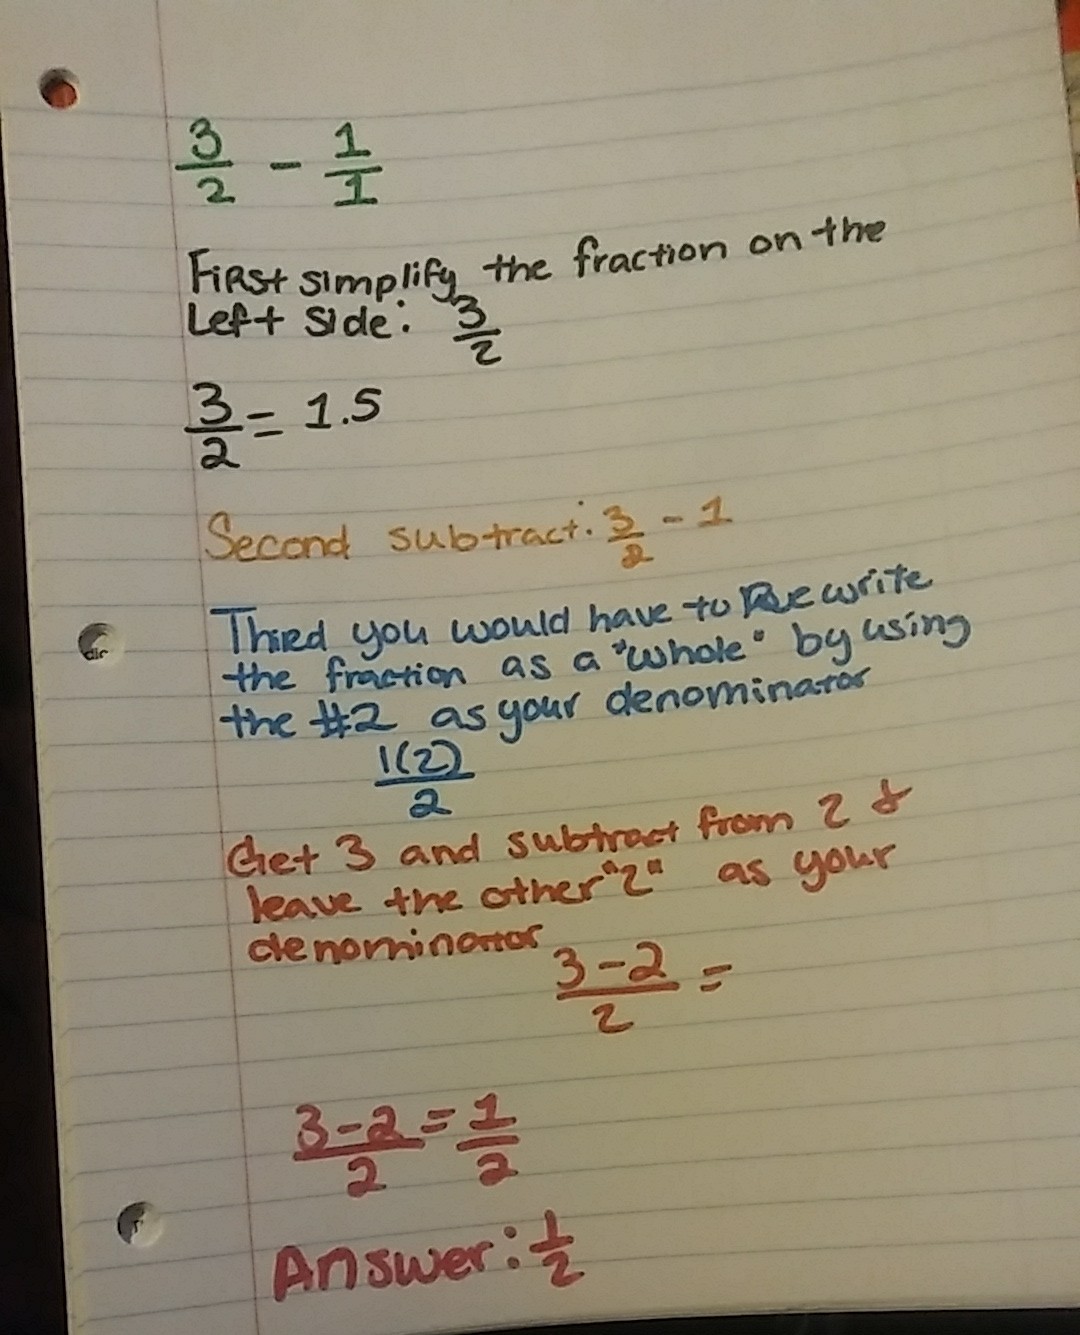 3/2 - 1/1
First simplify the fraction on the
Left side: 3/2
3/2 = 1.5
Second subtract: 3/2 - 1
Third you would have to Rewrite
the fraction as a "whole" by using
the #2 as your denominator
1(2)/2
Get 3 and subtract from 2 &
leave the other "2" as your
denominator
3-2/2 =
3-2/2 = 1/2
Answer: 1/2